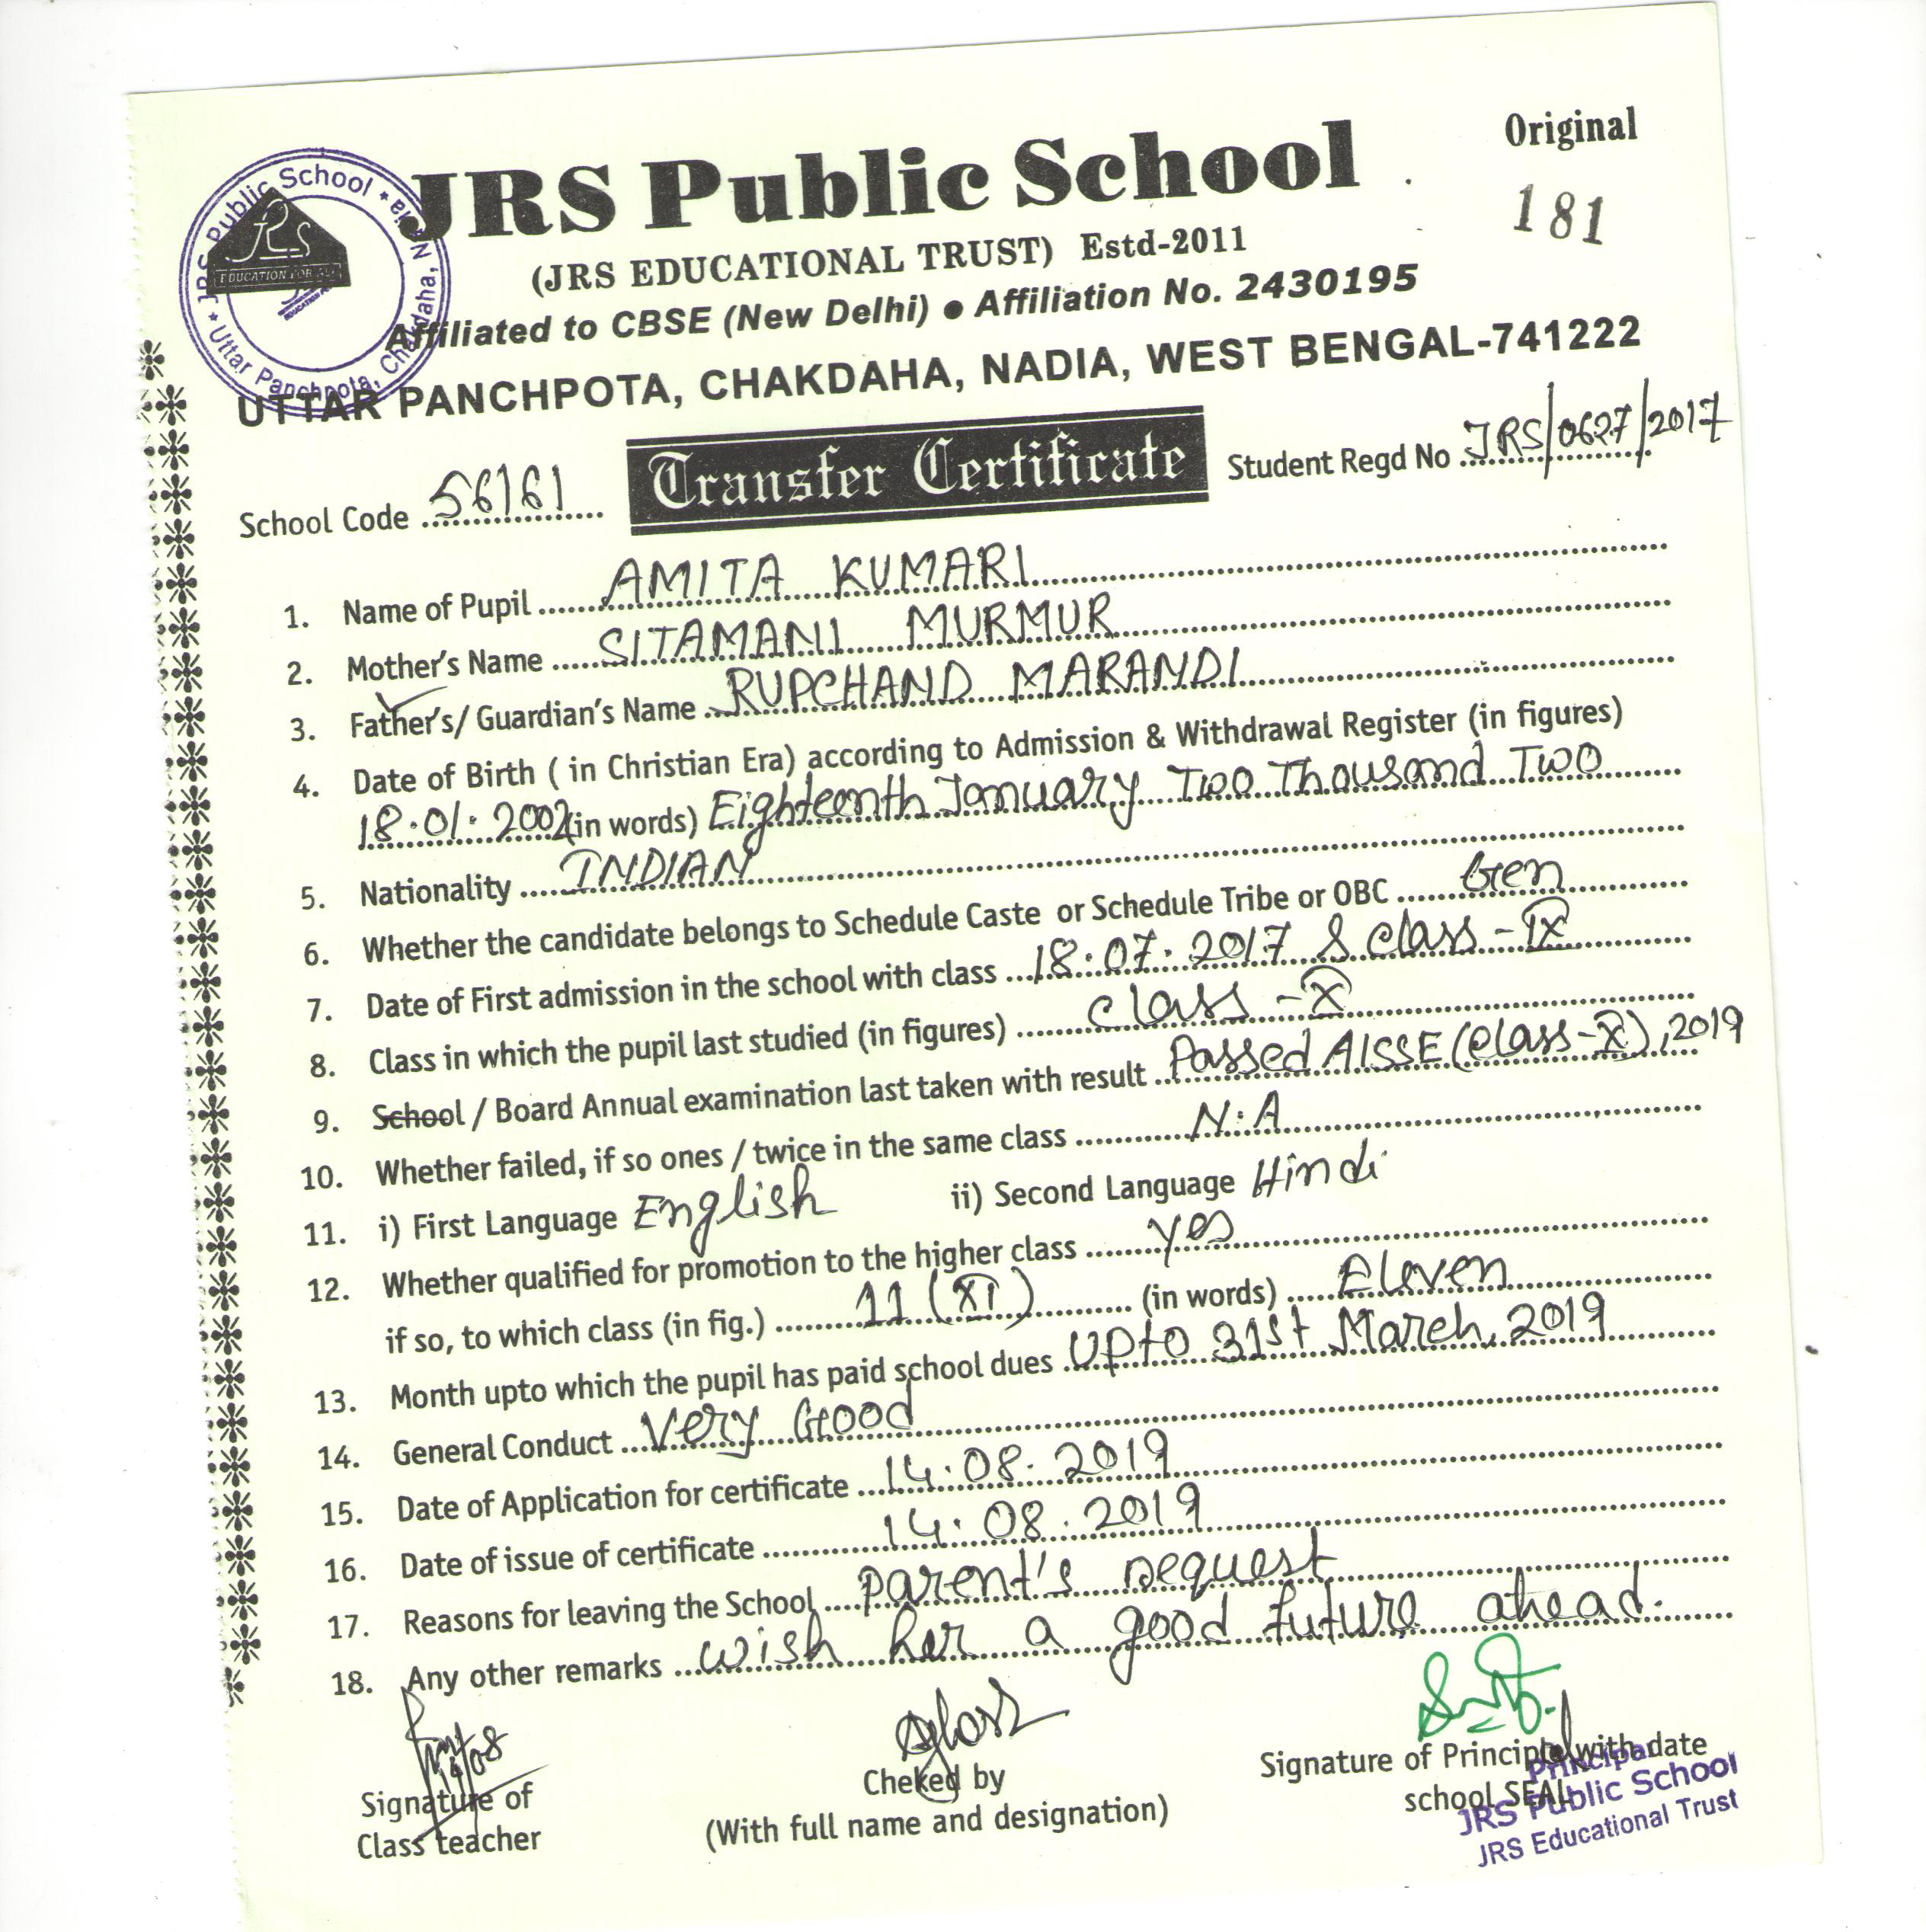 Original
JRS Public School
181
(JRS EDUCATIONAL TRUST) Estd-2011
Affiliated to CBSE (New Delhi) ● Affiliation No. 2430195
UTTAR PANCHPOTA, CHAKDAHA, NADIA, WEST BENGAL-741222
JRS Public School ★ Uttar Panchpota, Chakdaha, Nadia ★
JRS
EDUCATION FOR ALL
School Code 56161 Transfer Certificate Student Regd No JRS/0627/2017
1. Name of Pupil AMITA KUMARI
2. Mother's Name SITAMANI MURMUR
3. Father's/ Guardian's Name RUPCHAND MARANDI
4. Date of Birth ( in Christian Era) according to Admission & Withdrawal Register (in figures)
18.01.2002 (in words) Eighteenth January Two Thousand Two
5. Nationality INDIAN
6. Whether the candidate belongs to Schedule Caste or Schedule Tribe or OBC Gen
7. Date of First admission in the school with class 18.07.2017 & class - IX
8. Class in which the pupil last studied (in figures) class - X
9. School / Board Annual examination last taken with result Passed AISSE (class-X), 2019
10. Whether failed, if so ones / twice in the same class N.A
11. i) First Language English ii) Second Language Hindi
12. Whether qualified for promotion to the higher class yes
if so, to which class (in fig.) 11 (XI) (in words) Eleven
13. Month upto which the pupil has paid school dues upto 31st March, 2019
14. General Conduct Very Good
15. Date of Application for certificate 14.08.2019
16. Date of issue of certificate 14.08.2019
17. Reasons for leaving the School parent's request
18. Any other remarks wish her a good future ahead.
Signature of
Class teacher
Cheked by
(With full name and designation)
Signature of Principle with date
school SEAL
Principal
JRS Public School
JRS Educational Trust